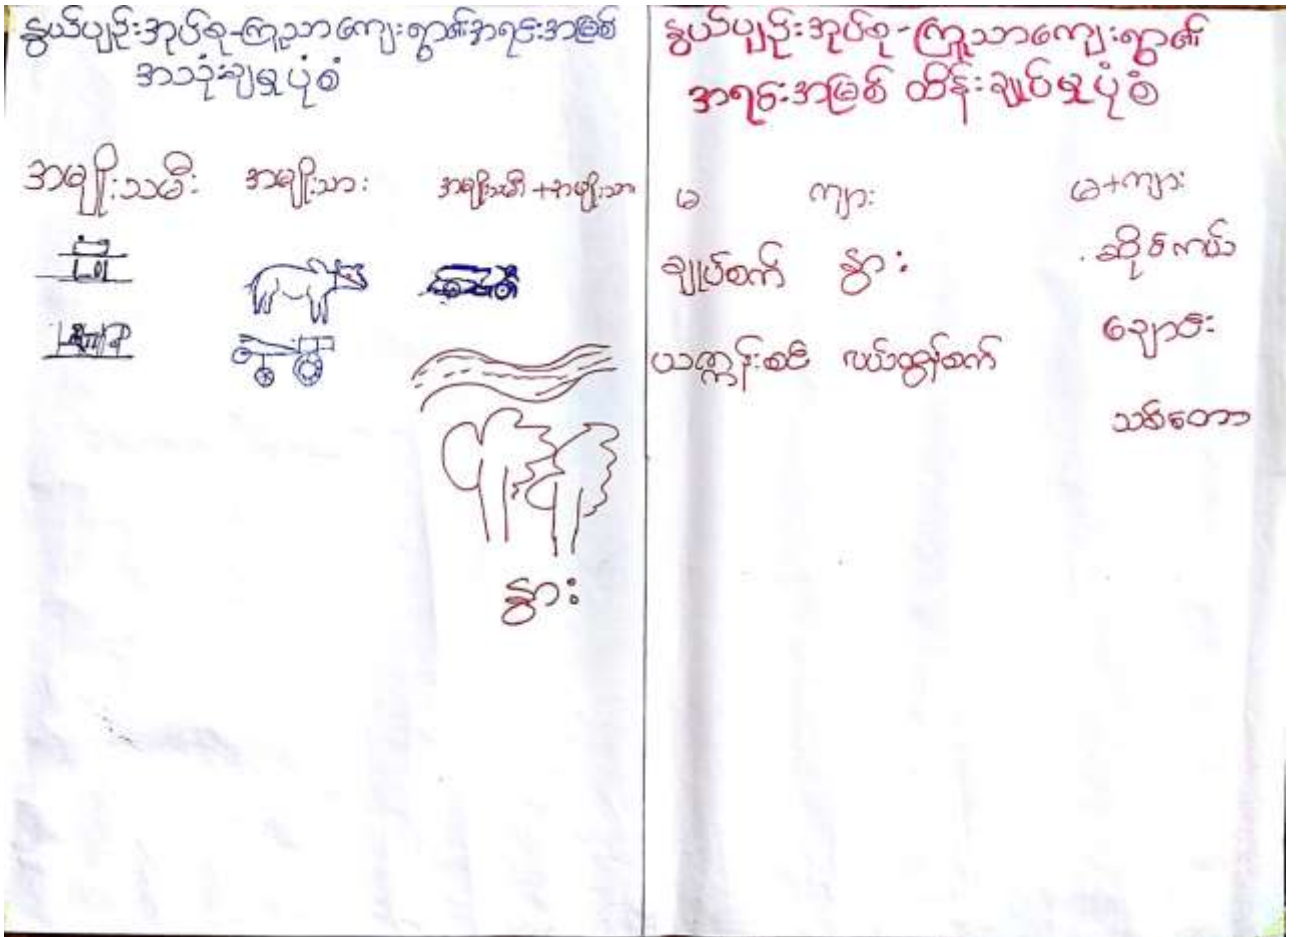 နွယ်ပျဉ်းအုပ်စု-ကြူသာကျေးရွာ၏အရင်းအမြစ်
အသုံးချမှုပုံစံ
အမျိုးသမီး အမျိုးသား အမျိုးသမီး+အမျိုးသား
နွား
နွယ်ပျဉ်းအုပ်စု-ကြူသာကျေးရွာ၏
အရင်းအမြစ် ထိန်းချုပ်မှုပုံစံ
မ ကျား မ+ကျား
ချုပ်စက် နွား ဆိုင်ကယ်
ချောင်း
ယက္ကန်းစင် လယ်ထွန်စက်
သစ်တော